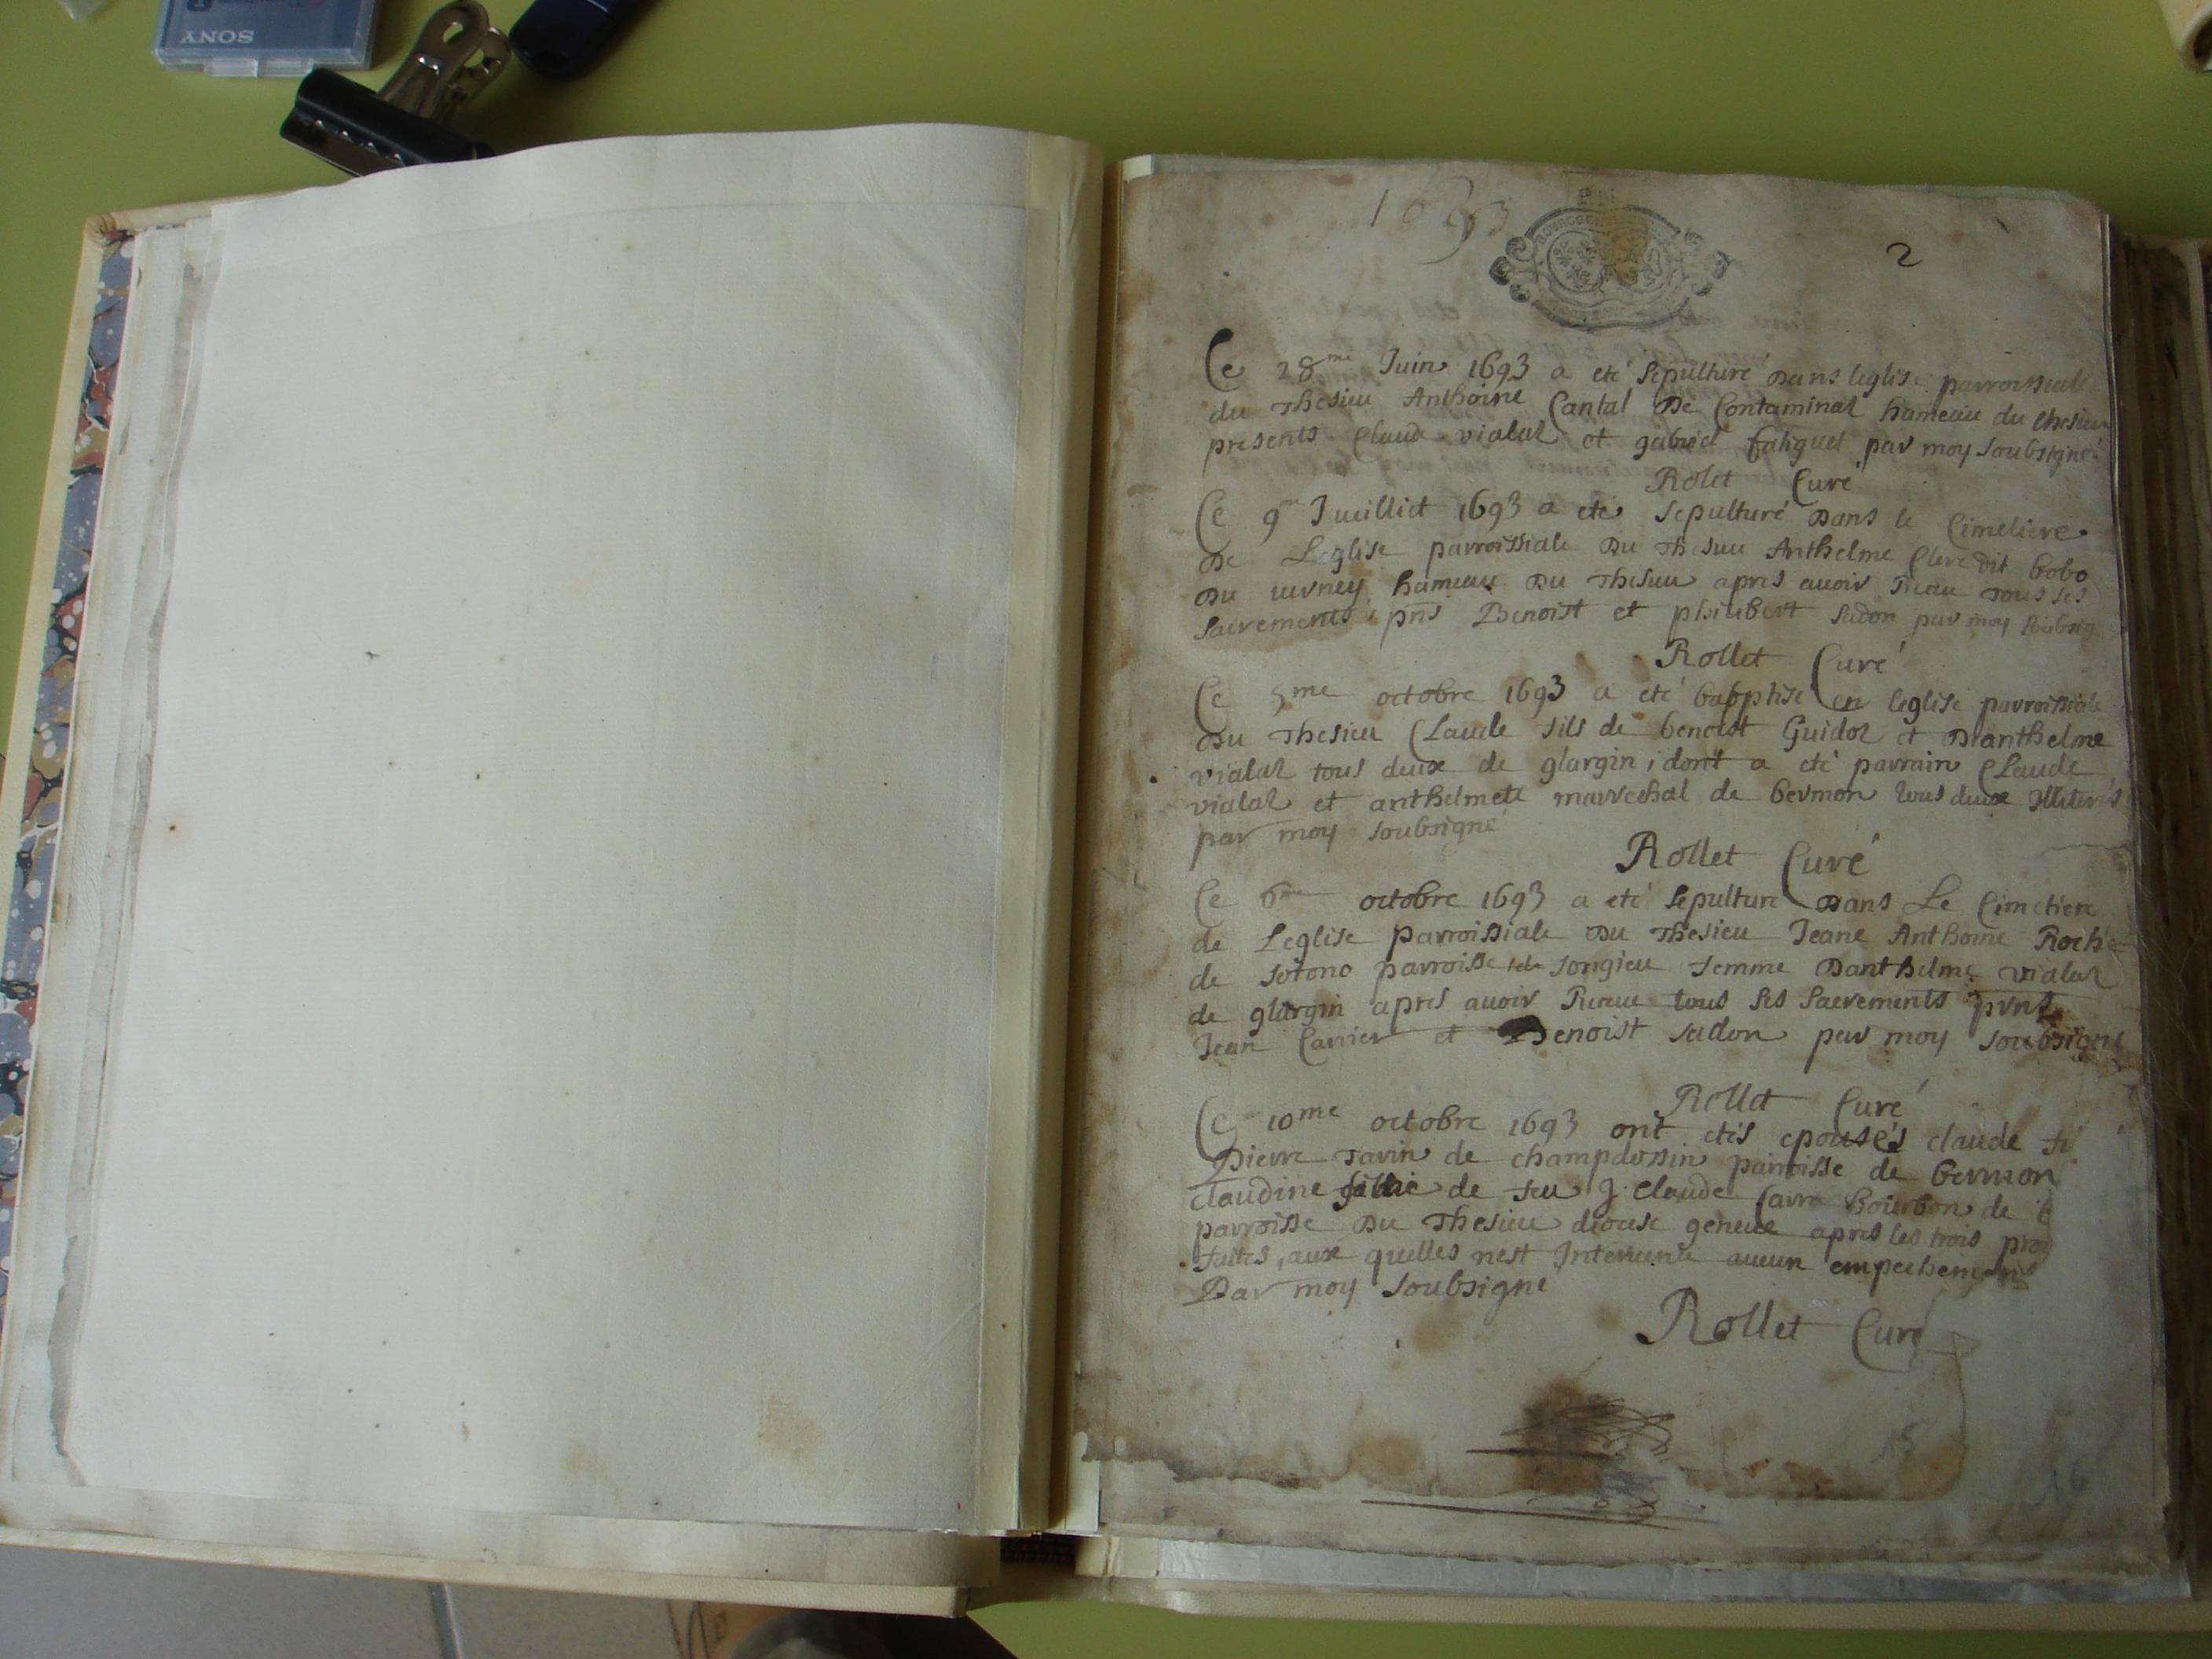 SONY
1693
2
Ce 28me Juin 1693 a eté sepulturé dans leglise parroissiale
du Thesieu Anthoine Cantal De Contaminaz hameau du thesieu
presents Claude vialaz et gabriel fatiguet par moy soubsigné
Rolet Curé
Ce 9me Jueilliet 1693 a eté sepulturé Dans le Cimetiere
De Leglise parroissiale Du Thesieu Anthelme Clerc dit bobo
Du hameau Du Thesieu apres auoir Receu tous ses
sacrements pns Benoist et philibert sadon par moy soubsig
Rollet Curé
Ce 5me octobre 1693 a eté babptisé en leglise parroissiale
Du Thesieu Claude fils de benoist Guidoz et Danthelme
vialaz tous deux de glargin, dont a eté parrain Claude
vialaz et anthelmete marrechal de bermon tous deux Illiterés
par moy soubsigné
Rollet Curé
Ce 6me octobre 1693 a eté sepulture Dans Le Cimetiere
de Leglise parroissiale Du Thesieu Jeane Anthoine Roche
de sotono parroisse de songieu femme Danthelme vialaz
de glargin apres auoir Receue tous ses sacrements prnts
Jean Carrier et Benoist sadon par moy soubsigné
Rollet Curé
Ce 10me octobre 1693 ont etés epousés claude fi
Pierre savin de champdossin parroisse de bermon
claudine fillie de feu J. Claude Bourbon de
parroisse Du Thesieu diouse geneue apres les trois pro
faites, aux quelles nest Interuenu aucun empechement
Par moy soubsigné
Rollet Curé